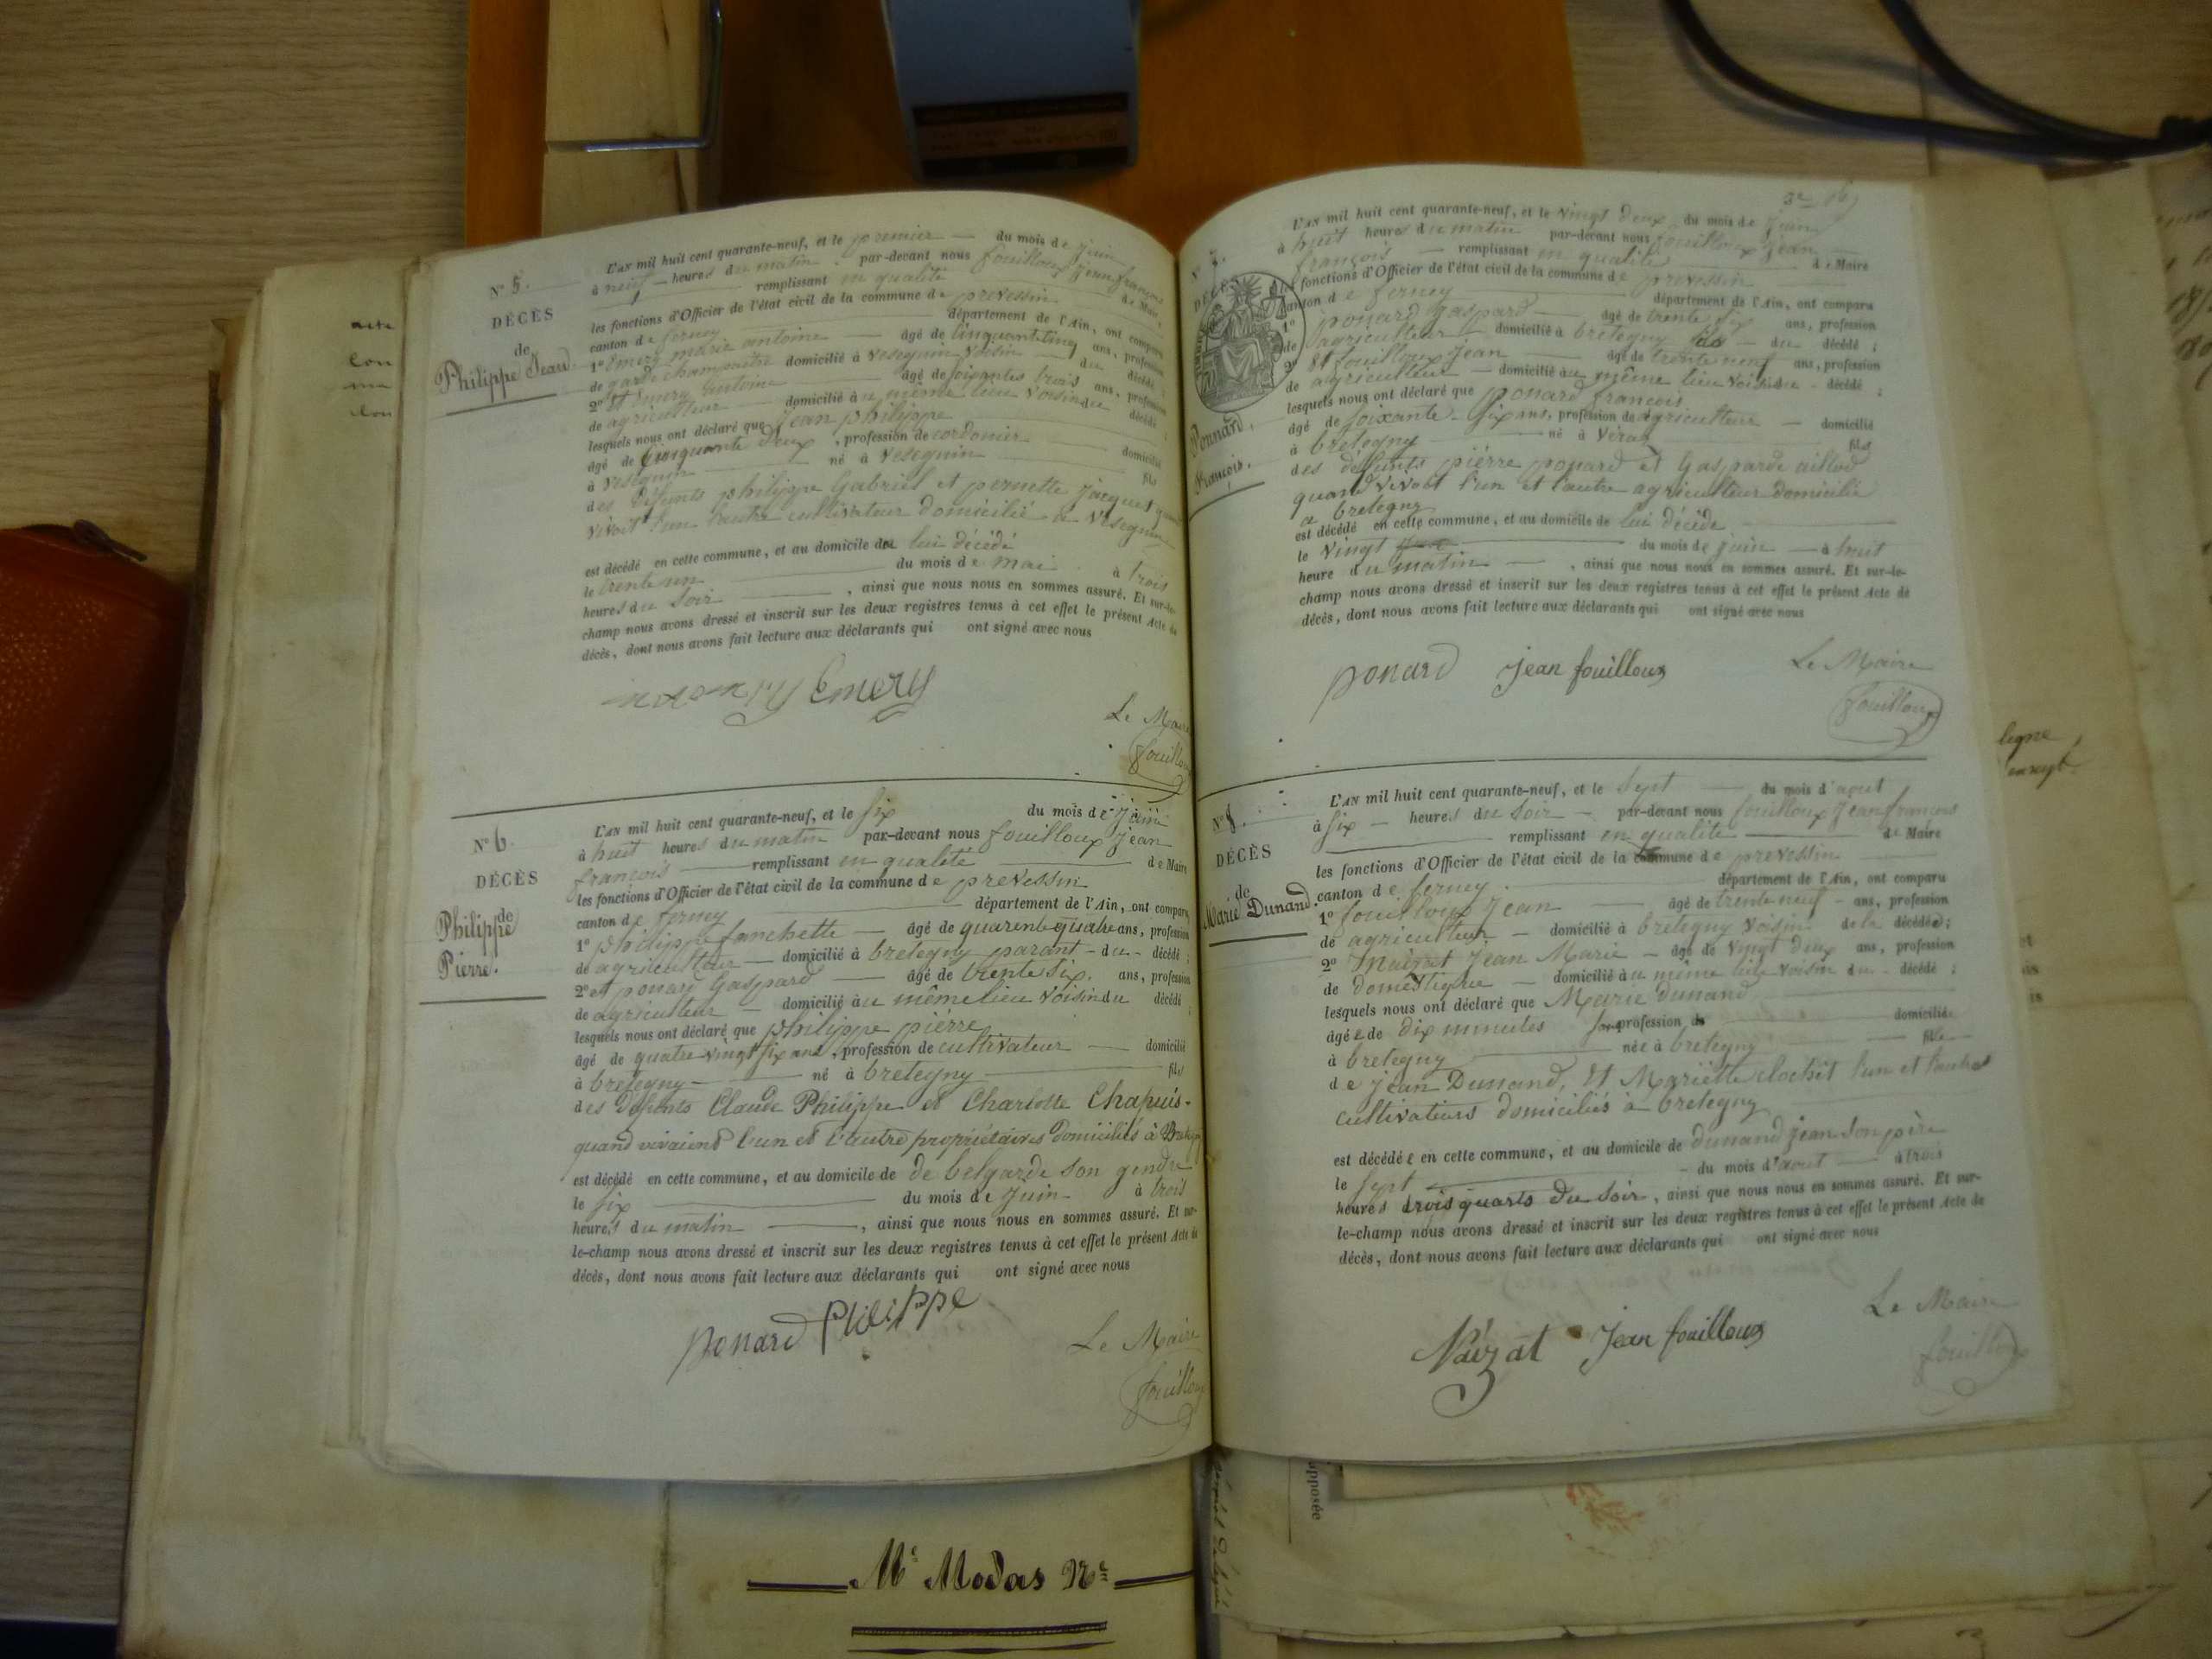 N° 5.
DÉCÈS
de
Philippe Jean.
L'AN mil huit cent quarante-neuf, et le premier du mois de juin
à neuf heures du matin par-devant nous fouilloux jean françois
remplissant en qualité de Maire,
les fonctions d'Officier de l'état civil de la commune de prevessin
canton de ferney département de l'Ain, ont comparu
1° Emery marie antoine âgé de cinquantecinq ans, profession
de garde champaitre domicilié à vesegnin voisin du décédé ;
2° et Emery antoine âgé de soixantes trois ans, profession
de agriculteur domicilié au même lieu voisin du décédé ;
lesquels nous ont déclaré que jean philippe
âgé de Cinquante deux, profession de cordonier domicilié
à vesegnin né à vesegnin fils
des défunts philippe Gabriel et pernette jacquet quand
vivoit l'un l'autre cultivateur domicilié a vesegnin
est décédé en cette commune, et au domicile de lui décédé
le trente un du mois de mai à trois
heures du soir, ainsi que nous nous en sommes assuré. Et sur-le-
champ nous avons dressé et inscrit sur les deux registres tenus à cet effet le présent Acte de
décès, dont nous avons fait lecture aux déclarants qui ont signé avec nous
Emery
Le Maire
fouilloux
N° 6.
DÉCÈS
de
Philippe
Pierre.
L'AN mil huit cent quarante-neuf, et le six du mois de juin
à huit heures du matin par-devant nous fouilloux jean
françois remplissant en qualité de Maire
les fonctions d'Officier de l'état civil de la commune de prevessin
canton de ferney département de l'Ain, ont comparu
1° philippe franchette âgé de quarente quatre ans, profession
de agriculteur domicilié à bretegny parant du décédé ;
2° et ponard Gaspard âgé de trente six ans, profession
de agriculteur domicilié au même lieu voisin du décédé ;
lesquels nous ont déclaré que philippe pièrre
âgé de quatre vingt six ans, profession de cultivateur domicilié
à bretegny né à bretegny fils
des défunts Claude Philippe et Charlotte Chapuis.
quand vivaient l'un et l'autre propriétaires domiciliés à Bretegny
est décédé en cette commune, et au domicile de de belgarde son gendre
le six du mois de juin à trois
heures du matin, ainsi que nous nous en sommes assuré. Et sur-
le-champ nous avons dressé et inscrit sur les deux registres tenus à cet effet le présent Acte de
décès, dont nous avons fait lecture aux déclarants qui ont signé avec nous
ponard Philippe
Le Maire
fouilloux
N° 7.
DÉCÈS
Ponnard,
François.
L'AN mil huit cent quarante-neuf, et le vingt deux du mois de juin
à huit heures du matin par-devant nous fouilloux jean
françois remplissant en qualité de Maire
les fonctions d'Officier de l'état civil de la commune de prevessin
canton de ferney département de l'Ain, ont comparu
1° ponard gaspard âgé de trente six ans, profession
de agriculteur domicilié à bretegny du décédé ;
2° et fouilloux jean âgé de trente neuf ans, profession
de agriculteur domicilié au même lieu voisin du décédé ;
lesquels nous ont déclaré que ponard françois
âgé de soixante six ans, profession de agriculteur domicilié
à bretegny né à véraz fils
des défunts pièrre ponard et Gasparde aillod
quand vivoit l'un et l'autre agriculteur domicilié
a bretegny
est décédé en cette commune, et au domicile de lui décédé
le vingt du mois de juin à huit
heure du matin, ainsi que nous nous en sommes assuré. Et sur-le-
champ nous avons dressé et inscrit sur les deux registres tenus à cet effet le présent Acte de
décès, dont nous avons fait lecture aux déclarants qui ont signé avec nous
ponard jean fouilloux
Le Maire
fouilloux
N° 8.
DÉCÈS
de
Marie Dunand.
L'AN mil huit cent quarante-neuf, et le sept du mois d'aout
à six heures du soir par-devant nous fouilloux jean françois
remplissant en qualité de Maire
les fonctions d'Officier de l'état civil de la commune de prevessin
canton de ferney département de l'Ain, ont comparu
1° fouilloux jean âgé de trente neuf ans, profession
de agriculteur domicilié à bretegny voisin de la décédée ;
2° jean Marie âgé de vingt deux ans, profession
de domestique domicilié au même lieu voisin du décédé ;
lesquels nous ont déclaré que Marie Dunand
âgée de dix minutes profession de domicilié
à bretegny née à bretegny fille
de jean Dunand, et Mariette clochet l'un et l'autres
cultivateurs domiciliés à bretegny
est décédée en cette commune, et au domicile de dunand jean son père
le sept du mois d'aout à trois
heures trois quarts du soir, ainsi que nous nous en sommes assuré. Et sur-
le-champ nous avons dressé et inscrit sur les deux registres tenus à cet effet le présent Acte de
décès, dont nous avons fait lecture aux déclarants qui ont signé avec nous
jean fouilloux
Le Maire
fouilloux
ligne
Me Modas Nre
apposée